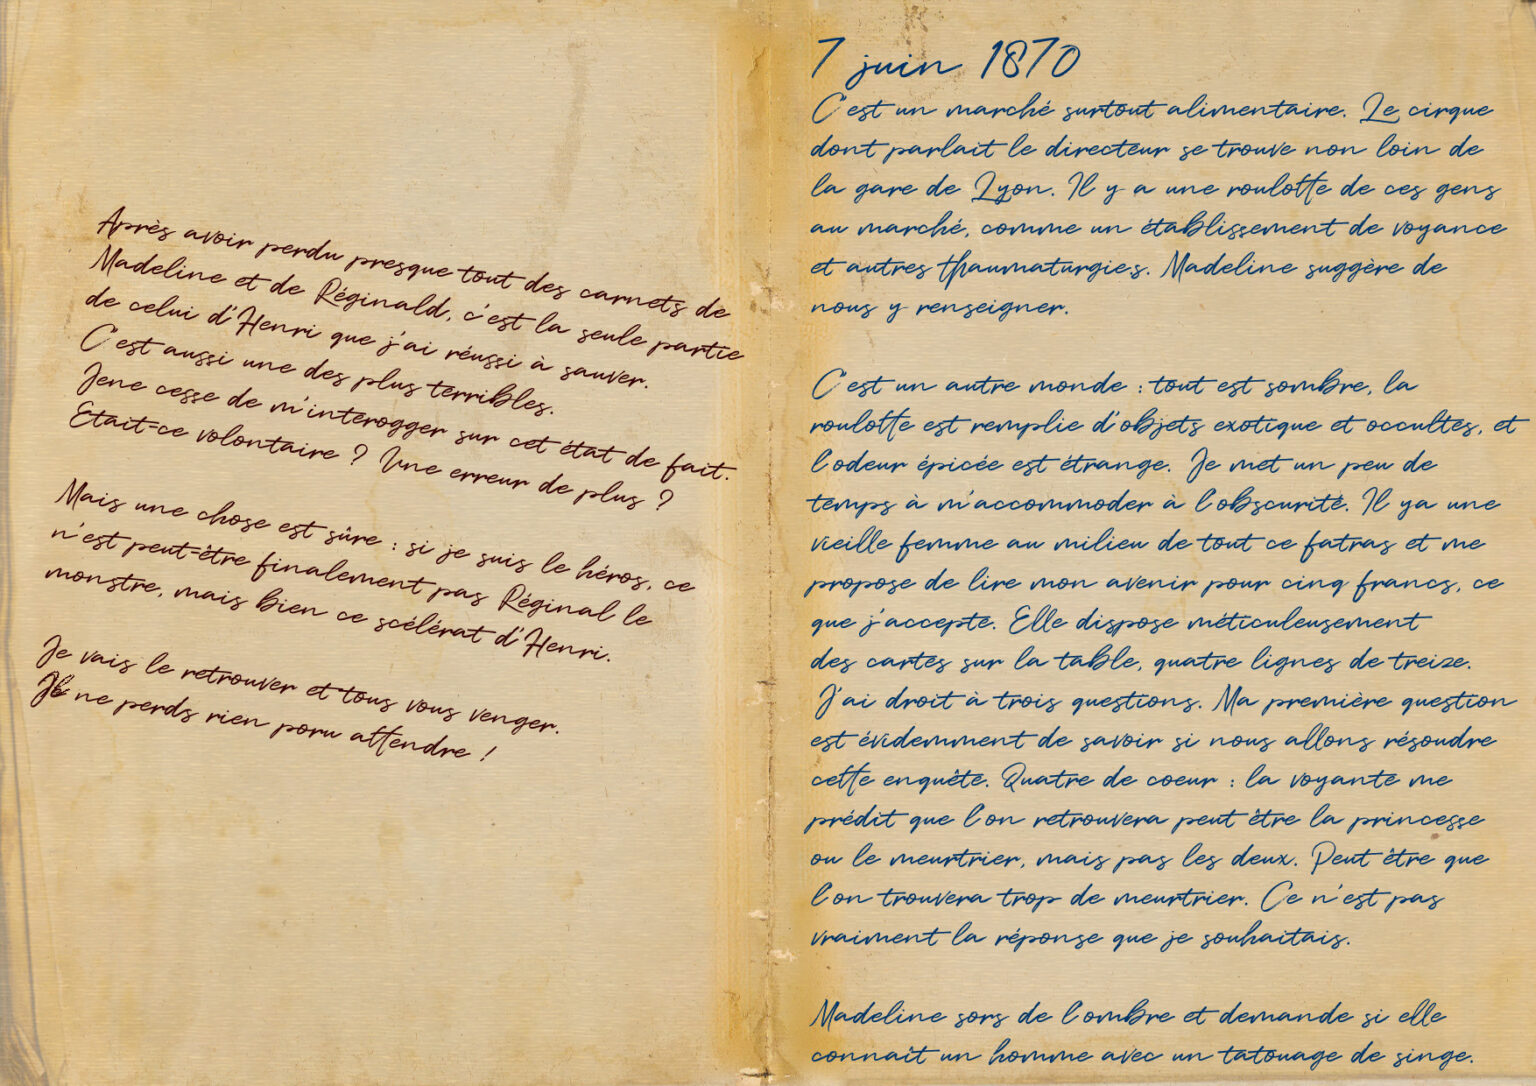 Après avoir perdu presque tout des carnets de
Madeline et de Réginald, c'est la seule partie
de celui d'Henri que j'ai réussi à sauver.
C'est aussi une des plus terribles.
Jene cesse de m'interogger sur cet état de fait.
Etait-ce volontaire ? Une erreur de plus ?
Mais une chose est sûre : si je suis le héros, ce
n'est peut-être finalement pas Réginal le
monstre, mais bien ce scélérat d'Henri.
Je vais le retrouver et tous vous venger.
ne perds rien poru attendre !
7 juin 1870
C'est un marché surtout alimentaire. Le cirque
dont parlait le directeur se trouve non loin de
la gare de Lyon. Il y a une roulotte de ces gens
au marché, comme un établissement de voyance
et autres thaumaturgie.s. Madeline suggère de
nous y renseigner.
C'est un autre monde : tout est sombre, la
roulotte est remplie d'objets exotique et occultes, et
l'odeur épicée est étrange. Je met un peu de
temps à m'accommoder à l'obscurité. Il ya une
vieille femme au milieu de tout ce fatras et me
propose de lire mon avenir pour cinq francs, ce
que j'accepte. Elle dispose méticuleusement
des cartes sur la table, quatre lignes de treize.
J'ai droit à trois questions. Ma première question
est évidemment de savoir si nous allons résoudre
cette enquête. Quatre de coeur : la voyante me
prédit que l'on retrouvera peut être la princesse
ou le meurtrier, mais pas les deux. Peut être que
l'on trouvera trop de meurtrier. Ce n'est pas
vraiment la réponse que je souhaitais.
Madeline sors de l'ombre et demande si elle
connaît un homme avec un tatouage de singe.